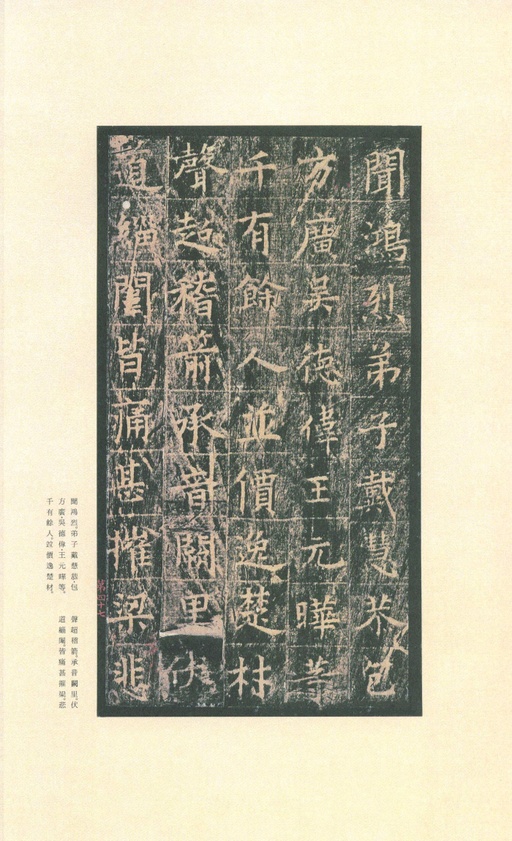 聞鴻烈弟子戴慧恭包
方廣吳德偉王元曄等
千有餘人並價逸楚材
聲超稽箭承音闕里伏
道緇闈皆痛甚摧梁悲
聞鴻烈。弟子戴慧恭、包
方廣、吳德偉、王元曄等。
千有餘人、並價逸楚材。
聲超稽箭。承音闕里。伏
道緇闈。皆痛甚摧梁。悲